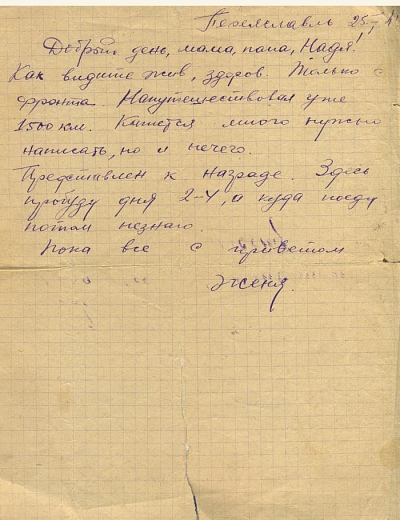 Переяславль 25
Добрый день, мама, папа, Надя!
Как видите жив, здоров. Только с
фронта. Напутешествовал уже
1500 км. Кажется много нужно
написать, но и нечего.
Представлен к награде. Здесь
пробуду дня 2-4, а куда поеду
потом незнаю.
Пока все с приветом
Женя.